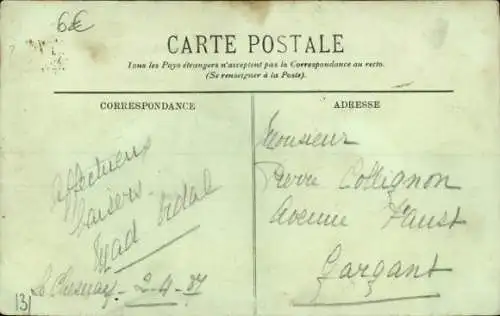 6€
CARTE POSTALE
Tous les Pays étrangers n'acceptent pas la Correspondance au recto.
(Se renseigner à la Poste).
CORRESPONDANCE
ADRESSE
Affectueux
baisers
Vidal
Le Chesnay - 2-4-07
Monsieur
Pierre Collignon
Avenue Faust
Gargant
131